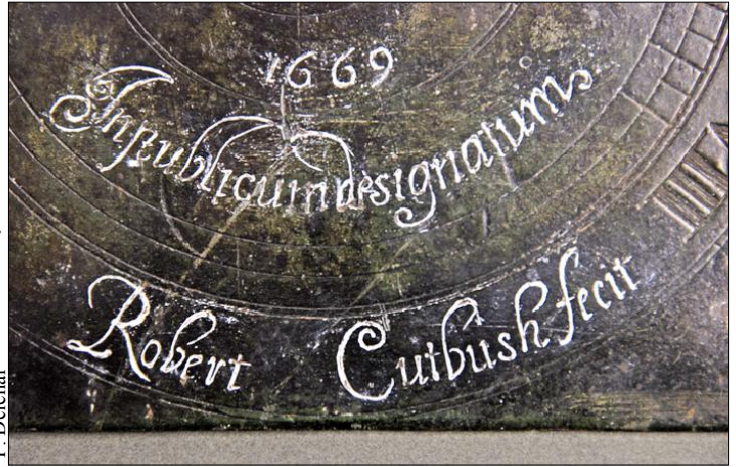 1669
In publicum designatum
Robert Cutbush fecit
IIII